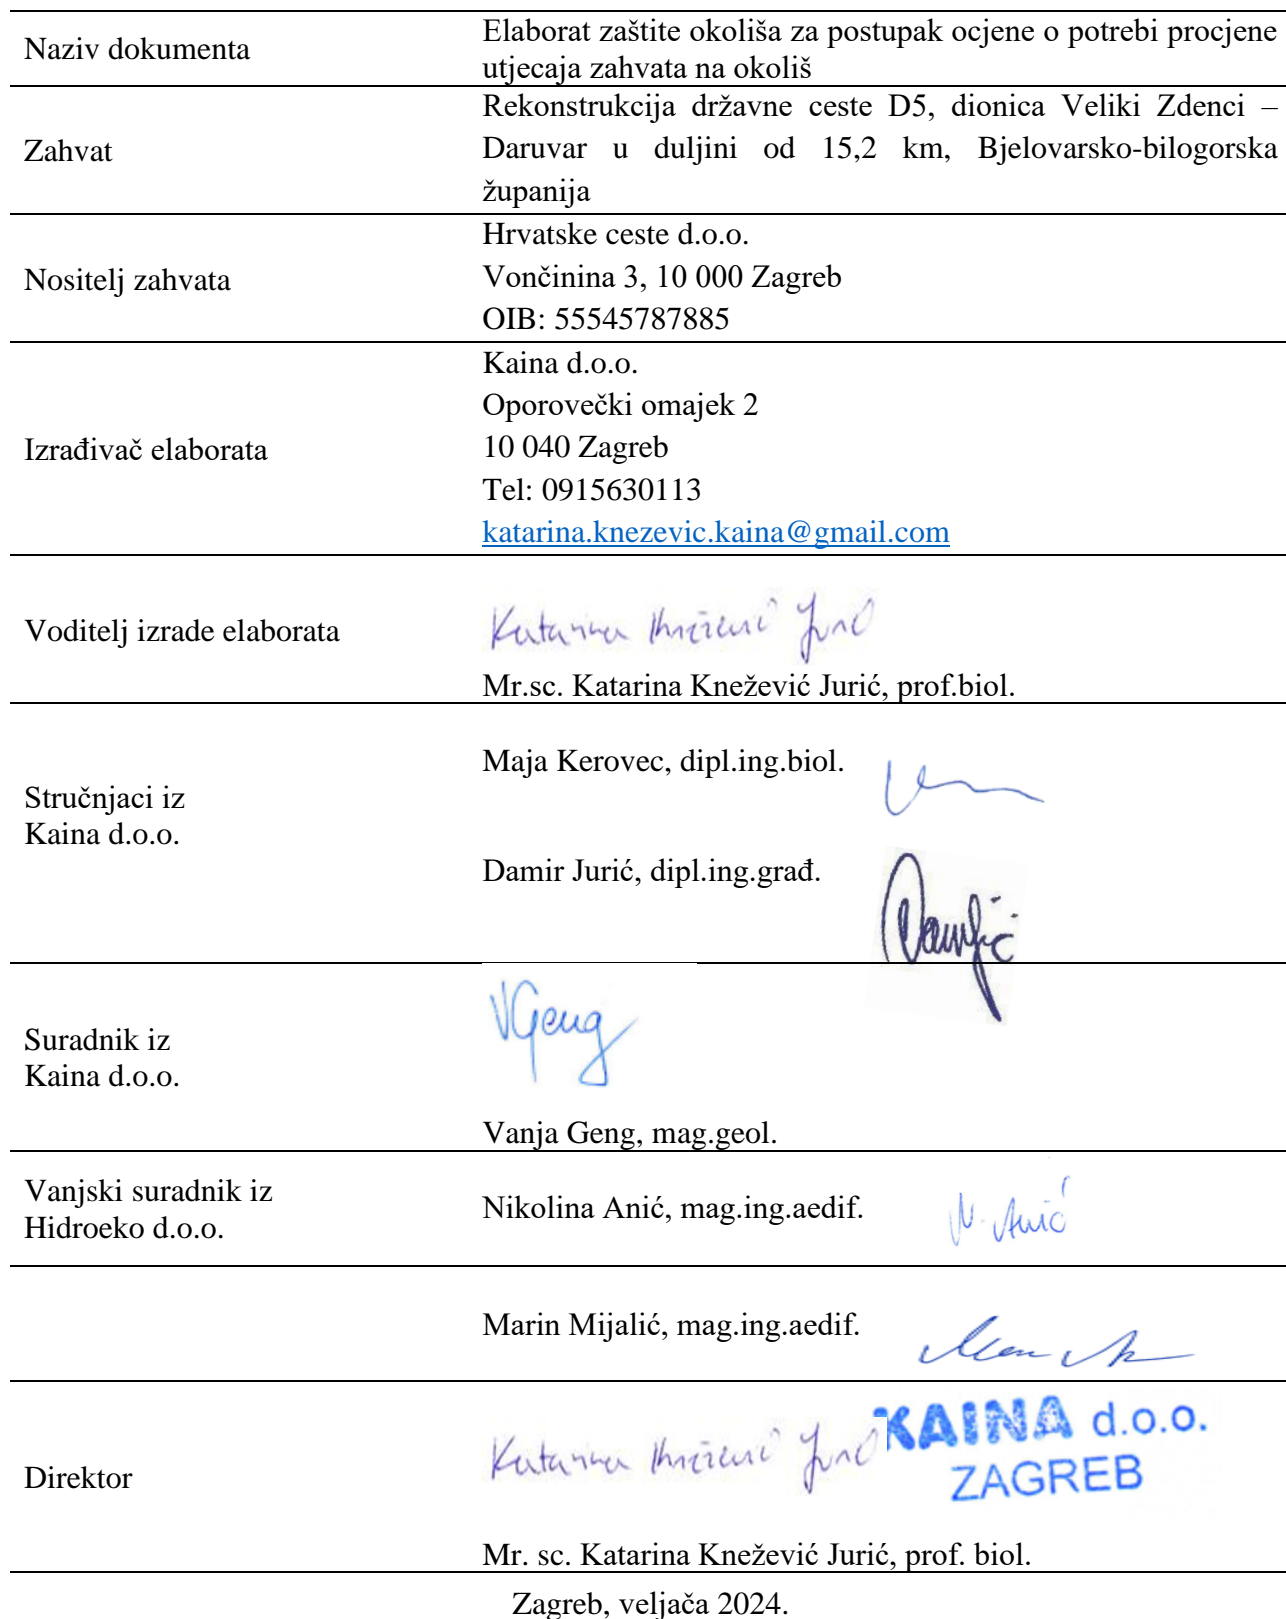 Naziv dokumenta
Elaborat zaštite okoliša za postupak ocjene o potrebi procjene
utjecaja zahvata na okoliš
Zahvat
Rekonstrukcija državne ceste D5, dionica Veliki Zdenci –
Daruvar u duljini od 15,2 km, Bjelovarsko-bilogorska
županija
Nositelj zahvata
Hrvatske ceste d.o.o.
Vončinina 3, 10 000 Zagreb
OIB: 55545787885
Izrađivač elaborata
Kaina d.o.o.
Oporovečki omajek 2
10 040 Zagreb
Tel: 0915630113
katarina.knezevic.kaina@gmail.com
Voditelj izrade elaborata
Katarina Knežević Jurić
Mr.sc. Katarina Knežević Jurić, prof.biol.
Stručnjaci iz
Kaina d.o.o.
Maja Kerovec, dipl.ing.biol.
Damir Jurić, dipl.ing.građ.
Suradnik iz
Kaina d.o.o.
VGeng
Vanja Geng, mag.geol.
Vanjski suradnik iz
Hidroeko d.o.o.
Nikolina Anić, mag.ing.aedif.
N. Anić
Marin Mijalić, mag.ing.aedif.
Direktor
Katarina Knežević Jurić
KAINA d.o.o.
ZAGREB
Mr. sc. Katarina Knežević Jurić, prof. biol.
Zagreb, veljača 2024.